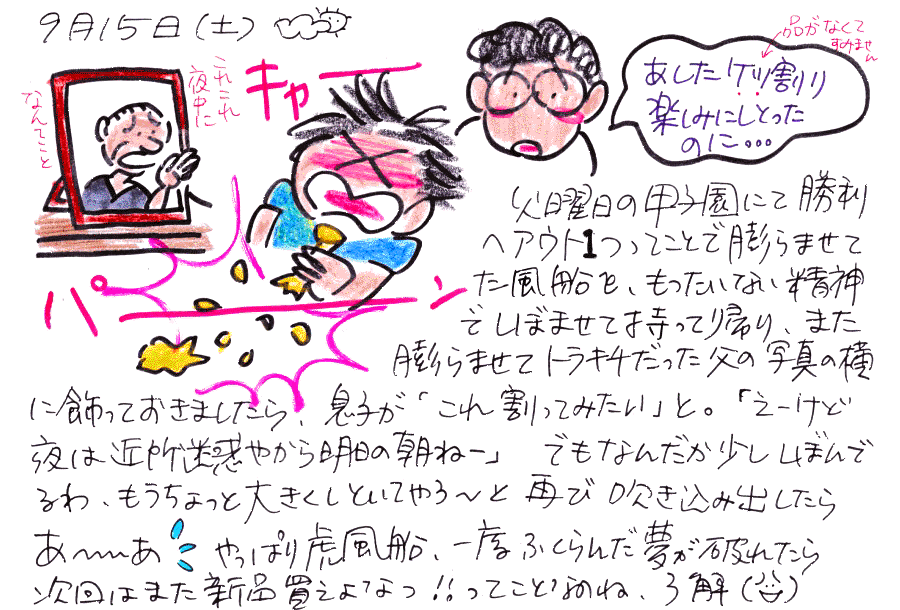 9月15日(土)
品がなくて
すみません
あしたケツ割り
楽しみにしとった
のに・・・
キャー
これこれ
夜中に
なんてこと
パーン
火曜日の甲子園にて勝利
へアウト1つってことで膨らませて
た風船を、もったいない精神
でしぼませて持って帰り、また
膨らませてトラキチだった父の写真の横
に飾っておきましたら、息子が「これ割ってみたい」と。「えーけど
夜は近所迷惑やから明日の朝ねー」 でもなんだか少ししぼんで
るわ、もうちょっと大きくしといてやろ〜と再び吹き込み出したら
あ〜〜〜あ やっぱり虎風船、一度ふくらんだ夢が破れたら
次回はまた新品買えよなっ!!ってことやのね、了解